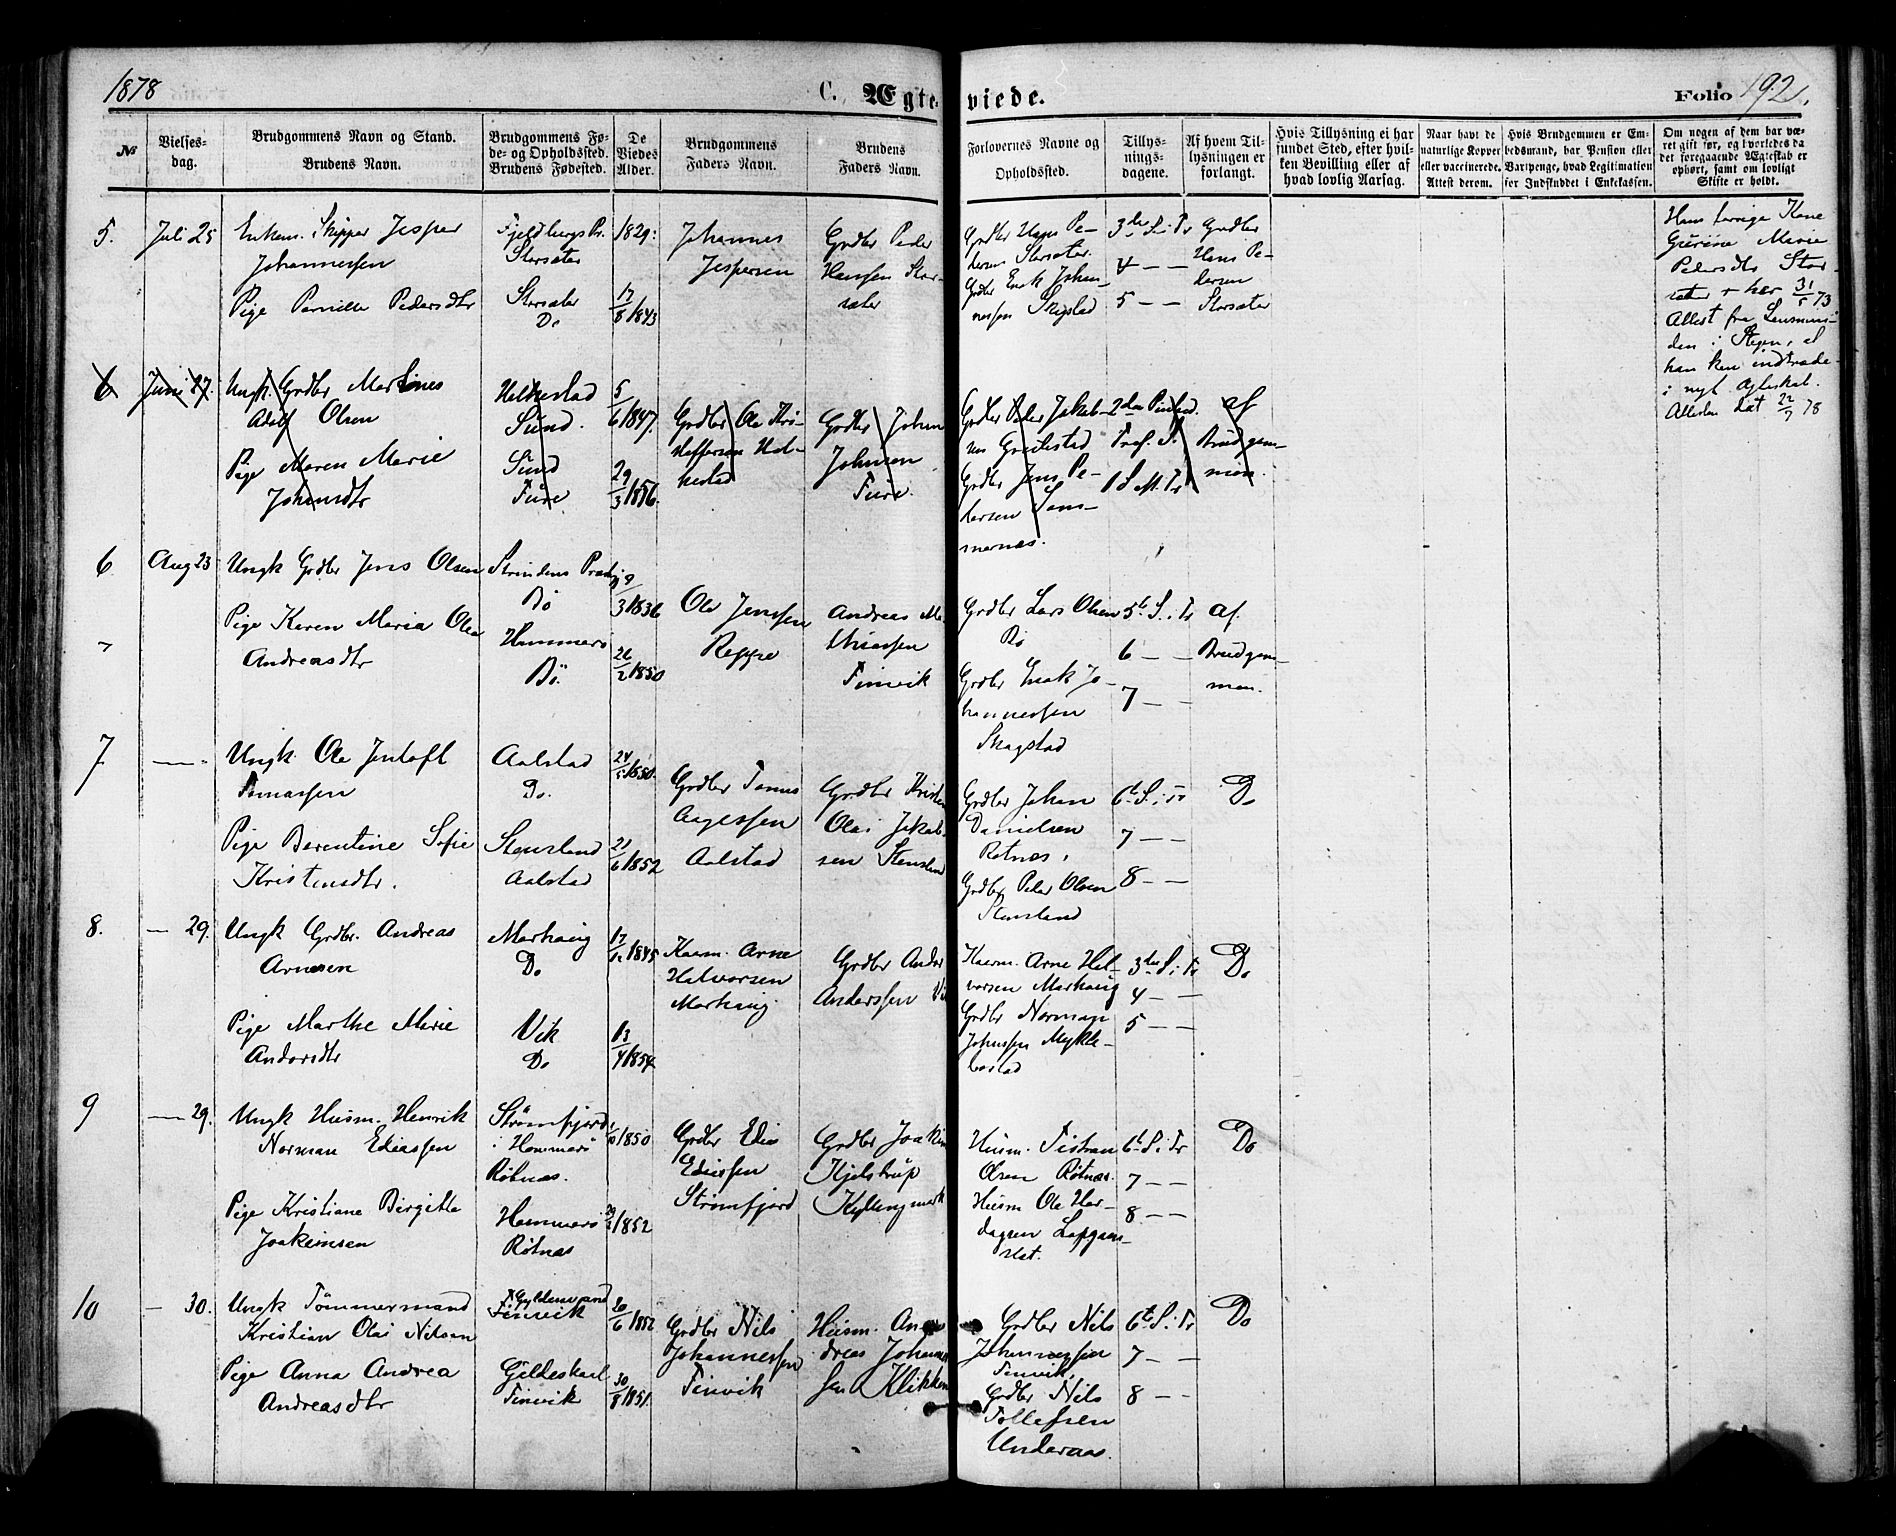 1878
C. Ægteviede.
Folio 192.
№
Vielses-
dag.
Brudgommens Navn og Stand.
Brudens Navn.
Brudgommens Fø-
de- og Opholdssted.
Brudens Fødested.
De
Viedes
Alder.
Brudgommens
Faders Navn.
Brudens
Faders Navn.
Forlovernes Navne og
Opholdssted.
Tillys-
nings-
dagene.
Af hvem Til-
lysningen er
forlangt.
Hvis Tillysning ei har
fundet Sted, efter hvil-
ken Bevilling eller af
hvad lovlig Aarsag.
Naar havt de
naturlige Kopper
eller vaccinerede.
Attest derom.
Hvis Brudgommen er Em-
bedsmand, har Pension eller
Vartpenge, hvad Legitimation
for Indskuddet i Enkekassen.
Om nogen af dem har væ-
ret gift før, og hvorledes da
det foregaaende Ægteskab er
ophørt, samt om lovligt
Skifte er holdt.
5.
Juli 25
Enkem. Skipper Jesper
Johannessen
Pige Pernille Pedersdtr
Fjeldbergs Pr.
Storsæter
Storsæter
Do
1829:
17/8 1843
Johannes
Jespersen
Grdbr Peder
Hansen Stor-
sæter
Grdbr Hans Pe-
dersen Storsæter
Grdbr Enok Johan-
nessen Skagstad
3de S. i Tr
4 — —
5 — —
Grdbr
Hans Pe-
dersen
Storsæter
Hans forrige Kone
Gurine Marie
Pedersdtr Stor-
sæter † her 31/5 73
Attest fra Lensman-
den i Stegen, at
han kan indtræde
i nyt Ægteskab.
Attesten dat 22/7 78
6
Juni 27.
Ungk. Grdbr Martines
Adolf Olsen
Pige Maren Marie
Johansdtr
Helnessad
Sund.
Sund
Fure
5/6 1847.
29/3 1856.
Grdbr Ole Kri-
stoffersen Hel-
nestad
Grdbr Johan
Johnsen
Fure.
Grdbr Peder Jakob-
Grdbr Jens Pe-
dersen Som-
mernes.
2den Pintsed.
Tref. S.
1 S. M. Tr
af
Brudgom-
men.
6
Aug 23
Ungk Grdbr Jens Olsen
Pige Karen Maria Olea
Andreasdtr
Strindens Præstgj
Bø
Hammerø
Bö.
9/3 1836
26/2 1850
Ole Jenssen
Reppe
Andreas Ma-
thiassen
Finvik
Grdbr Lars Olsen
Bø
Grdbr Enok Jo-
hannessen
Skagstad
5te S. i Tr
6 — —
7 — —
af.
Brudgom-
men.
7
— -
Ungk. Ole Jentoft
Tomassen
Pige Berentine Sofie
Kristensdtr.
Aalstad
Do.
Stensland
Aalstad
24/5 1850.
21/6 1852
Grdbr Tomas
Aagessen
Aalstad
Grdbr Kristen
Olai Jakob-
sen Stensland
Grdbr Johan
Danielsen
Rotnes,
Grdbr Peder Olsen
Stensland
6te S. i Tr
7 — —
8 — —
Do
8.
— 29.
Ungk Grdbr. Andreas
Arnesen
Pige Marthe Marie
Andersdtr
Markaug
Do
Vik
Do
17/12 1845
13/4 1854
Kaarm. Arne
Halvorsen
Markaug
Grdbr Anders
Anderssen Vik
Kaarm. Arne Hal-
vorsen Markaug
Grdbr Norman
Johnssen Mykle-
bostad
3de S. i Tr
4 — —
5 — —
Do
9
— 29.
Ungk Husm. Henrik
Norman Ediassen
Pige Kristiane Birgitte
Joakimsen
Strømfjord
i Hammerö
Rötnæs.
Hammerö
Rötnæs
1850
1852
Grdbr Edis
Edissen
Strömfjord
Grdbr Joakim
Hjelstrup
Kyllingmark
Husm. Tistran
Olsen Rötnæs.
Husm Ole Har-
dagsen Lapgam-
slet.
6te S. i Tr
7 — —
8 — —
Do
10
— 30.
Ungk Tömmermand
Kristian Olai Nilsen
Pige Anna Andrea
Andreasdtr
Finvik
Gildeskaal
Finvik
20/6 1852
30/8 1851.
Grdbr Nils
Johannessen
Finvik
Husm. An-
dreas Johan-
sen Klikken
Grdbr Nils
Johannessen
Finvik,
Grdbr Nils
Tollefsen
Underaas.
6te S. i Tr
7 — —
8 — —
Do